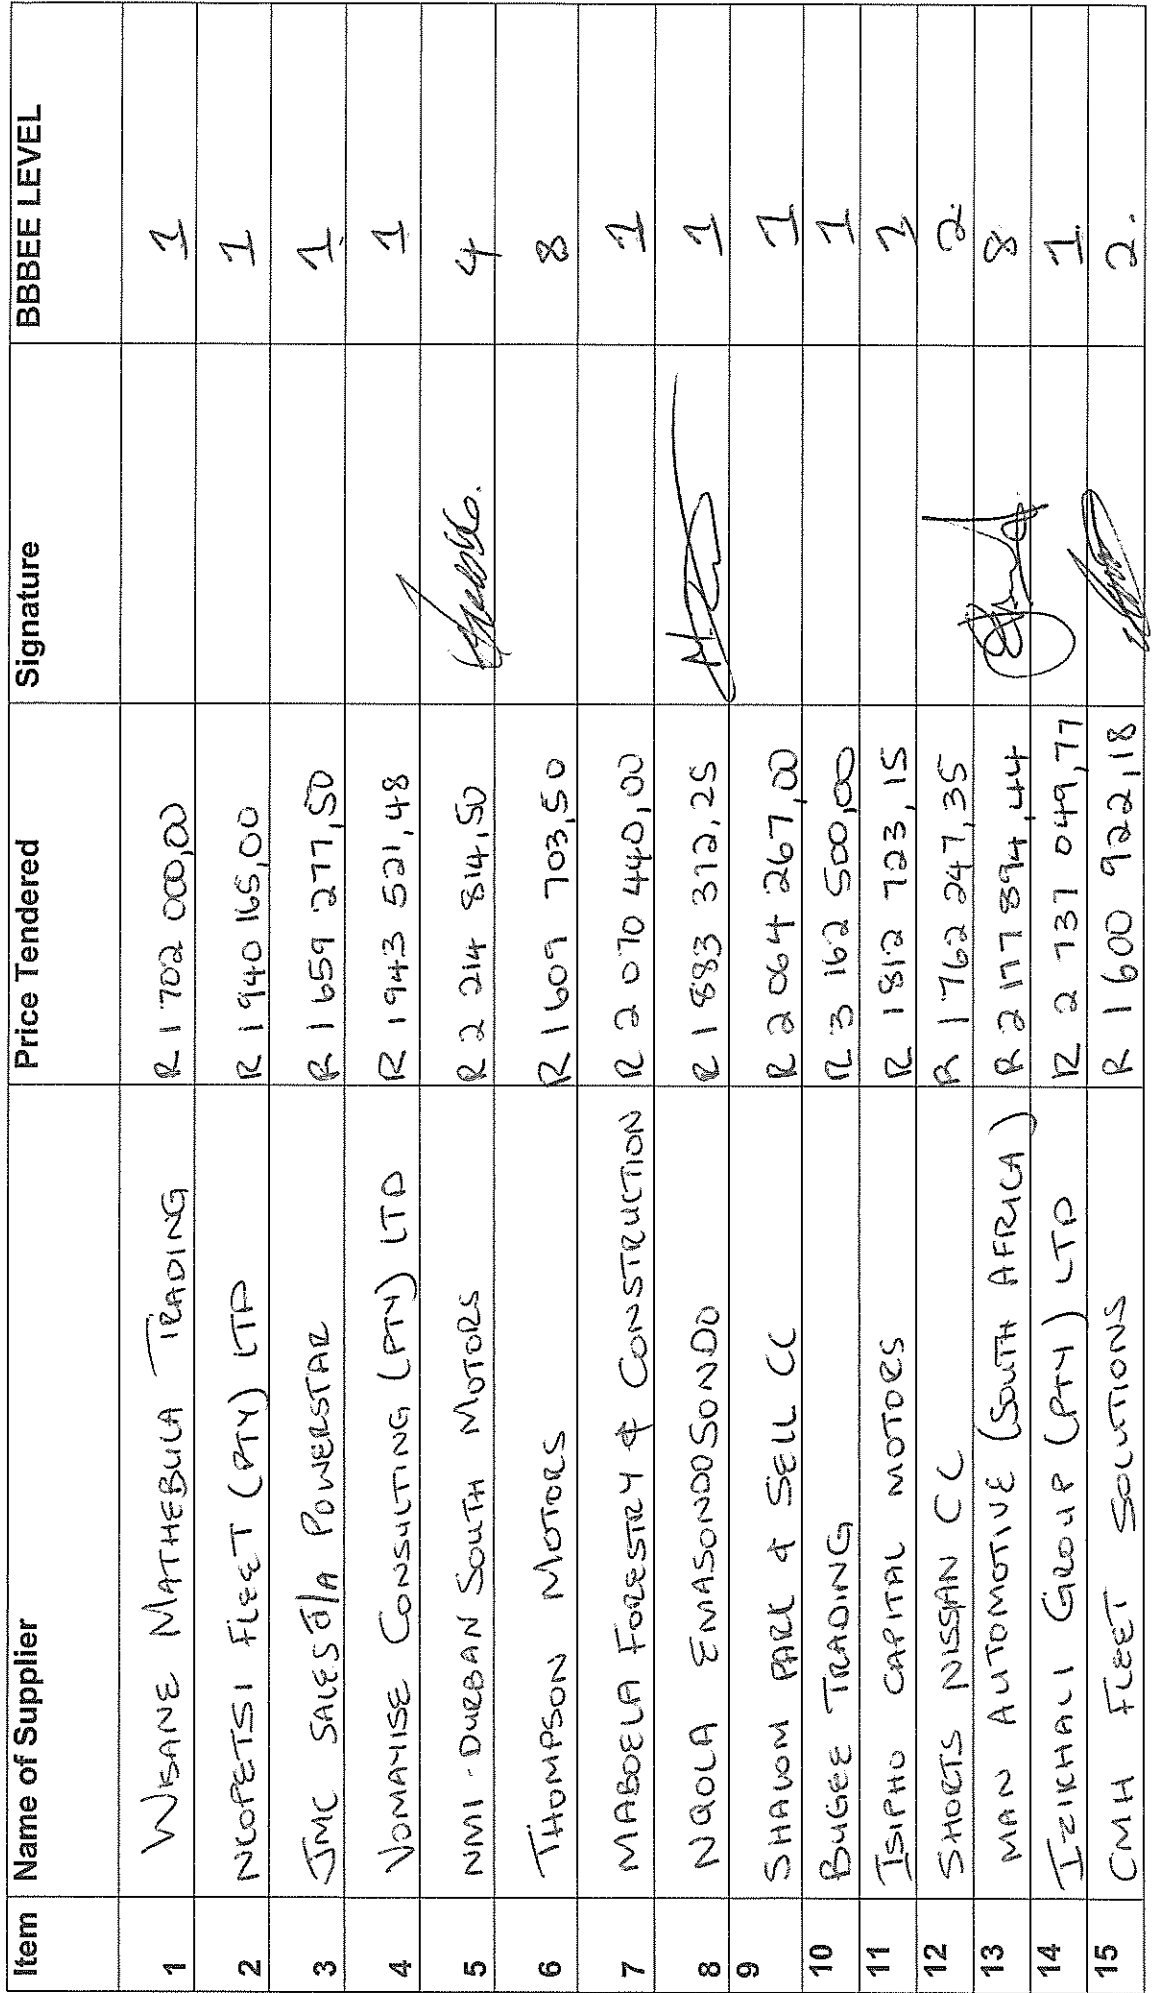 Item Name of Supplier Price Tendered Signature BBBEE LEVEL
1 WISANE MATHEBULA TRADING R 1 702 000,00 1
2 NCOPETSI FLEET (PTY) LTD R 1 940 165,00 1
3 JMC SALES t/A POWERSTAR R 1 659 277,50 1.
4 VOMAYISE CONSULTING (PTY) LTD R 1 943 521,48 1
5 NMI - DURBAN SOUTH MOTORS R 2 214 814,50 4
6 THOMPSON MOTORS R 1 609 703,50 8
7 MABOELA FORESTRY & CONSTRUCTION R 2 070 440,00 1
8 NQOLA EMASONDOSONDO R 1 883 312,25 1
9 SHALOM PARK & SELL CC R 2 064 267,00 1
10 BUGEE TRADING R 3 162 500,00 1
11 ISIPHO CAPITAL MOTORS R 1 812 723,15 1
12 SHORTS NISSAN CC R 1 762 247,35 2.
13 MAN AUTOMOTIVE (SOUTH AFRICA) R 2 177 894,44 8
14 IZIKHALI GROUP (PTY) LTD R 2 737 049,77 1.
15 CMH FLEET SOLUTIONS R 1 600 922,18 2.